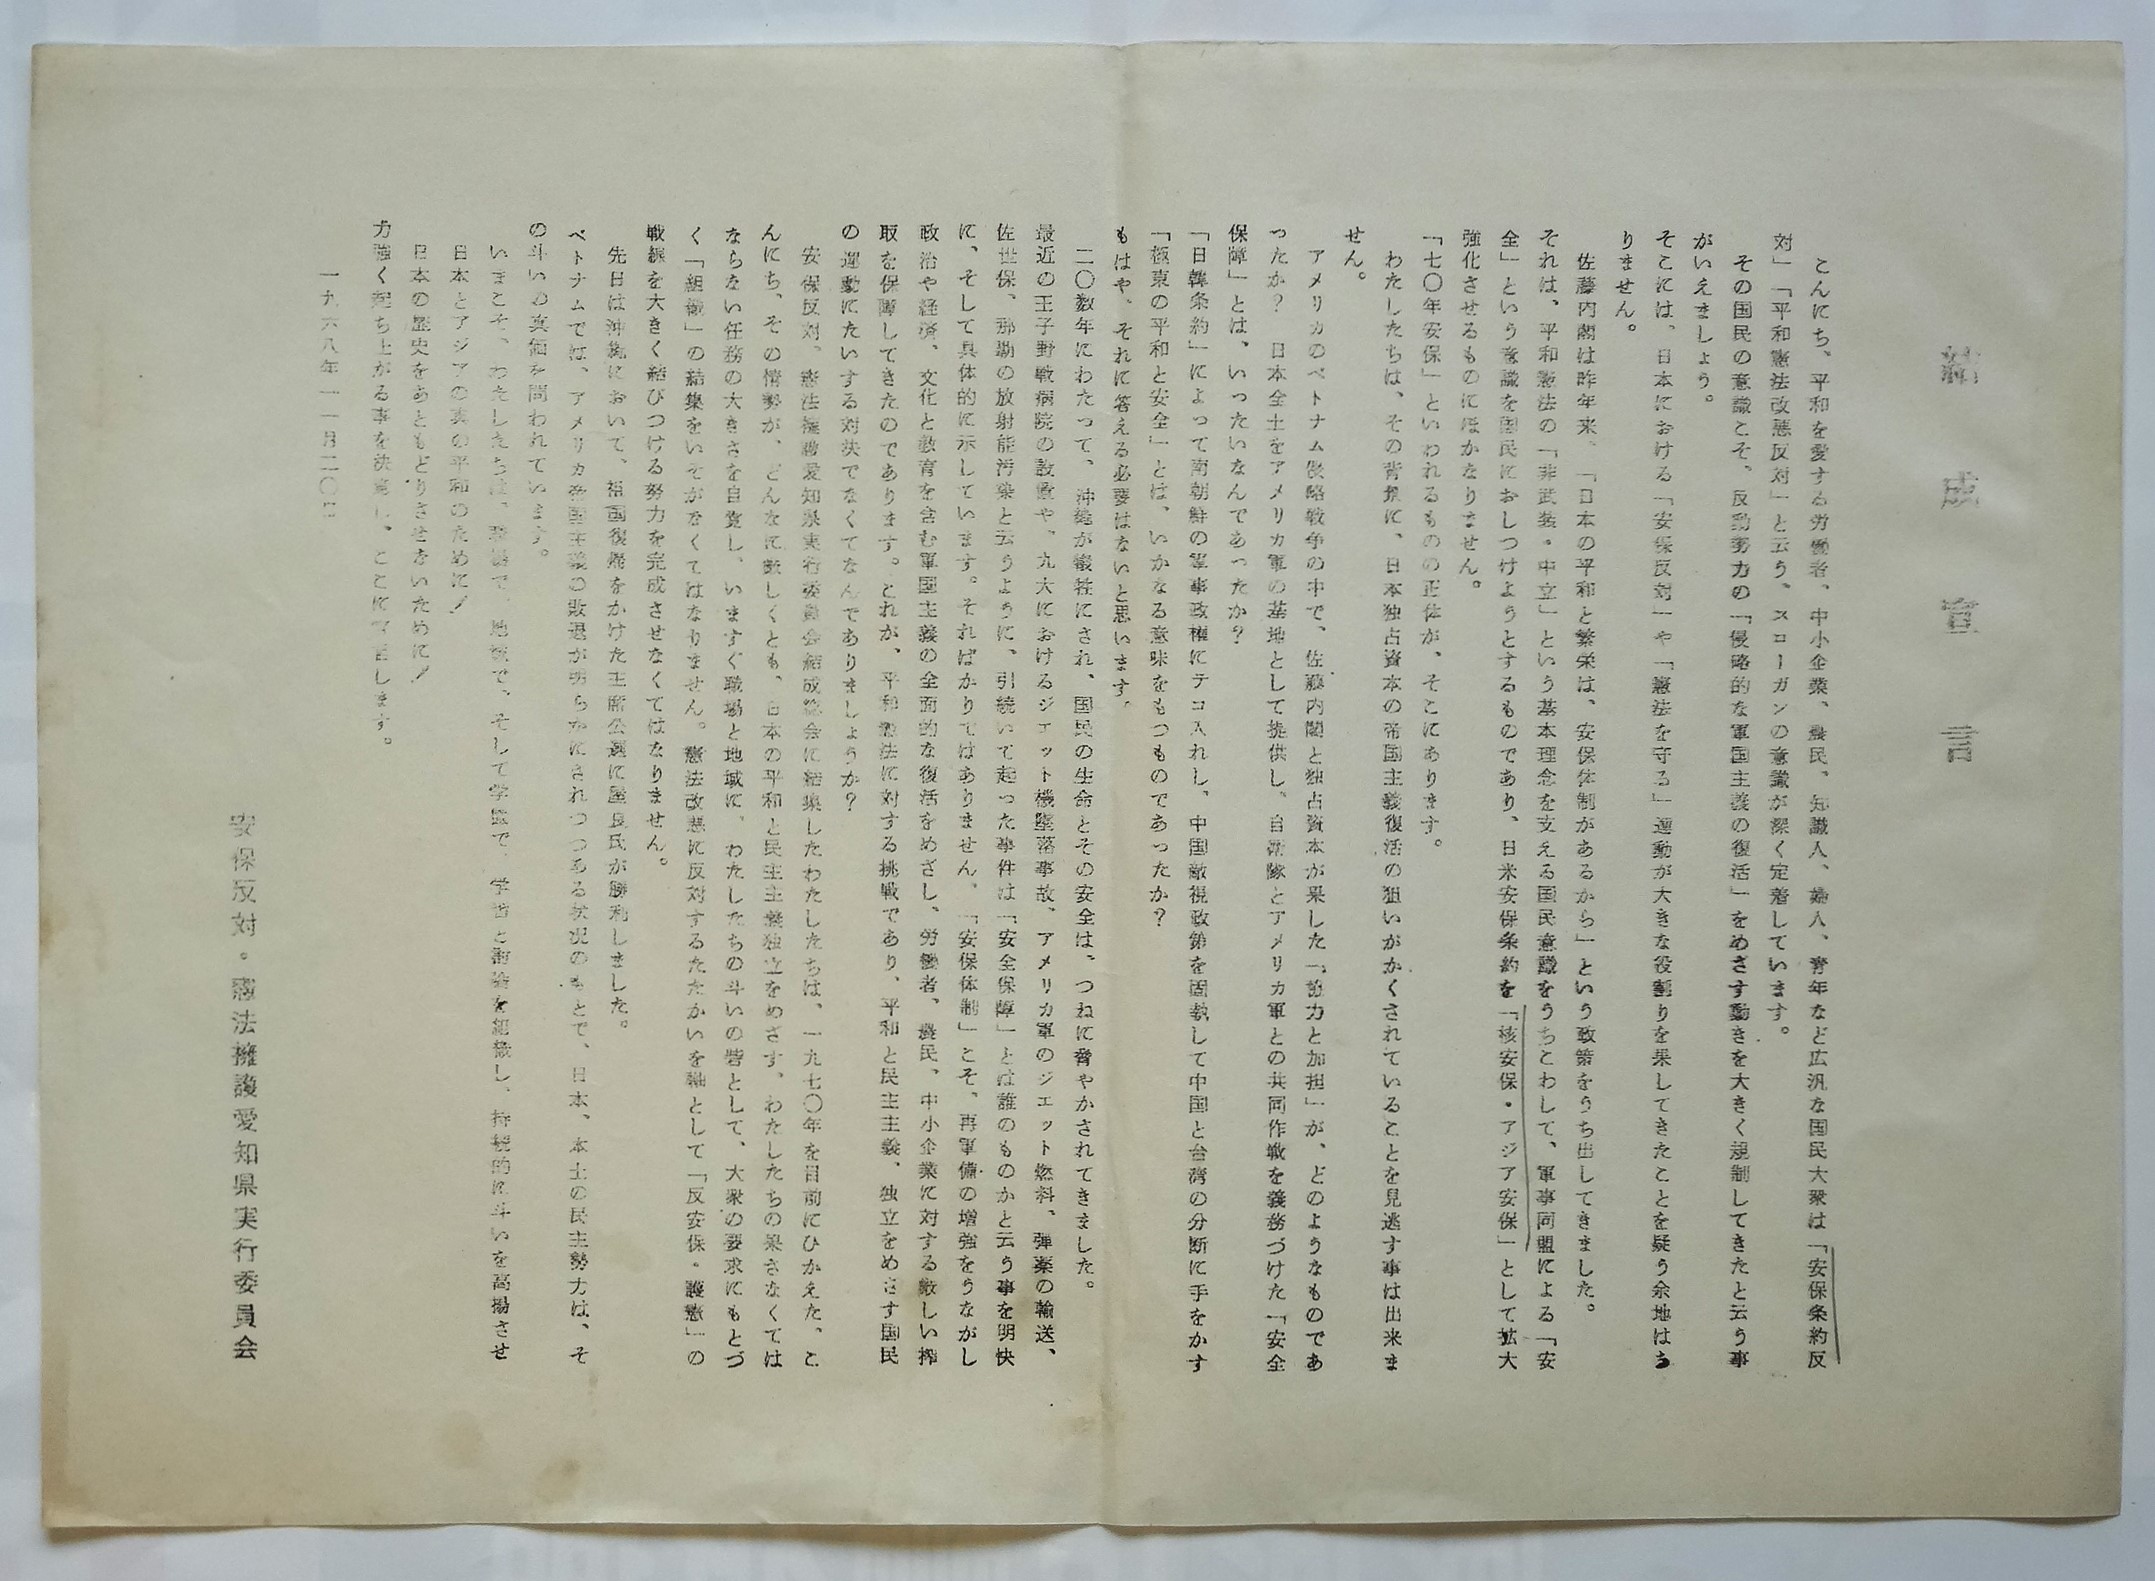 結成宣言
こんにち、平和を愛する労働者、中小企業、農民、知識人、婦人、青年など広汎な国民大衆は「安保条約反
対」「平和憲法改悪反対」と云う、スローガンの意識が深く定着しています。
その国民の意識こそ、反動勢力の「侵略的な軍国主義の復活」をめざす動きを大きく規制してきたと云う事
がいえましょう。
そこには、日本における「安保反対」や「憲法を守る」運動が大きな役割りを果してきたことを疑う余地はあ
りません。
佐藤内閣は昨年来、「日本の平和と繁栄は、安保体制があるから」という政策をうち出してきました。
それは、平和憲法の「非武装・中立」という基本理念を支える国民意識をうちこわして、軍事同盟による「安
全」という意識を国民におしつけようとするものであり、日米安保条約を「核安保・アジア安保」として拡大
強化させるものにほかなりません。
「七〇年安保」といわれるものの正体が、そこにあります。
わたしたちは、その背景に、日本独占資本の帝国主義復活の狙いがかくされていることを見逃す事は出来ま
せん。
アメリカのベトナム侵略戦争の中で、佐藤内閣と独占資本が果した「協力と加担」が、どのようなものであ
ったか？日本全土をアメリカ軍の基地として提供し、自衛隊とアメリカ軍との共同作戦を義務づけた「安全
保障」とは、いったいなんであったか？
「日韓条約」によって南朝鮮の軍事政権にテコ入れし、中国敵視政策を固執して中国と台湾の分断に手をかす
「極東の平和と安全」とは、いかなる意味をもつものであったか？
もはや、それに答える必要はないと思います。
二〇数年にわたって、沖縄が犠牲にされ、国民の生命とその安全は、つねに脅やかされてきました。
最近の王子野戦病院の設置や、九大におけるジェット機墜落事故、アメリカ軍のジェット燃料、弾薬の輸送、
佐世保、那覇の放射能汚染と云うように、引続いて起った事件は「安全保障」とは誰のものかと云う事を明快
に、そして具体的に示しています。そればかりではありません。「安保体制」こそ、再軍備の増強をうながし
政治や経済、文化と教育を含む軍国主義の全面的な復活をめざし、労働者、農民、中小企業に対する厳しい搾
取を保障してきたのであります。これが、平和憲法に対する挑戦であり、平和と民主主義、独立をめざす国民
の運動にたいする対決でなくてなんでありましょうか？
安保反対、憲法擁護愛知県実行委員会結成総会に結集したわたしたちは、一九七〇年を目前にひかえた、こ
んにち、その情勢が、どんなに厳しくとも、日本の平和と民主主義独立をめざす、わたしたちの果さなくては
ならない任務の大きさを自覚し、いますぐ職場と地域に、わたしたちの斗いの砦として、大衆の要求にもとづ
く「組織」の結集をいそがなくてはなりません。憲法改悪に反対するたたかいを軸として「反安保・護憲」の
戦線を大きく結びつける努力を完成させなくてはなりません。
先日は沖縄において、祖国復帰をかけた主席公選に屋良氏が勝利しました。
ベトナムでは、アメリカ帝国主義の敗退が明らかにされつつある状況のもとで、日本、本土の民主勢力は、そ
の斗いの真価を問われています。
いまこそ、わたしたちは、職場で、地域で、そして学園で、学習と討論を組織し、持続的に斗いを高揚させ
日本とアジアの真の平和のために！
日本の歴史をあともどりさせないために！
力強く起ち上がる事を決意し、ここに宣言します。
一九六八年一一月二〇日
安保反対・憲法擁護愛知県実行委員会